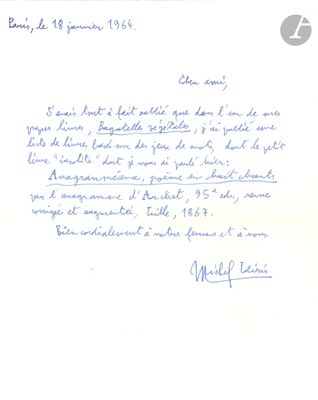 Paris, le 18 janvier 1964.
Cher ami,
J'avais tout à fait oublié que dans l'un de mes
livres, Bagatelles végétales, j'ai publié une
liste de livres basés sur des jeux de mots, dont le petit
livre "insolite" dont je vous ai parlé hier :
Anagramméana, poème en huit chants
par l'anagramme d'Archet, 95e ed., revue
corrigée et augmentée, Lille, 1867.
Bien cordialement à votre femme et à vous.
Michel Leiris